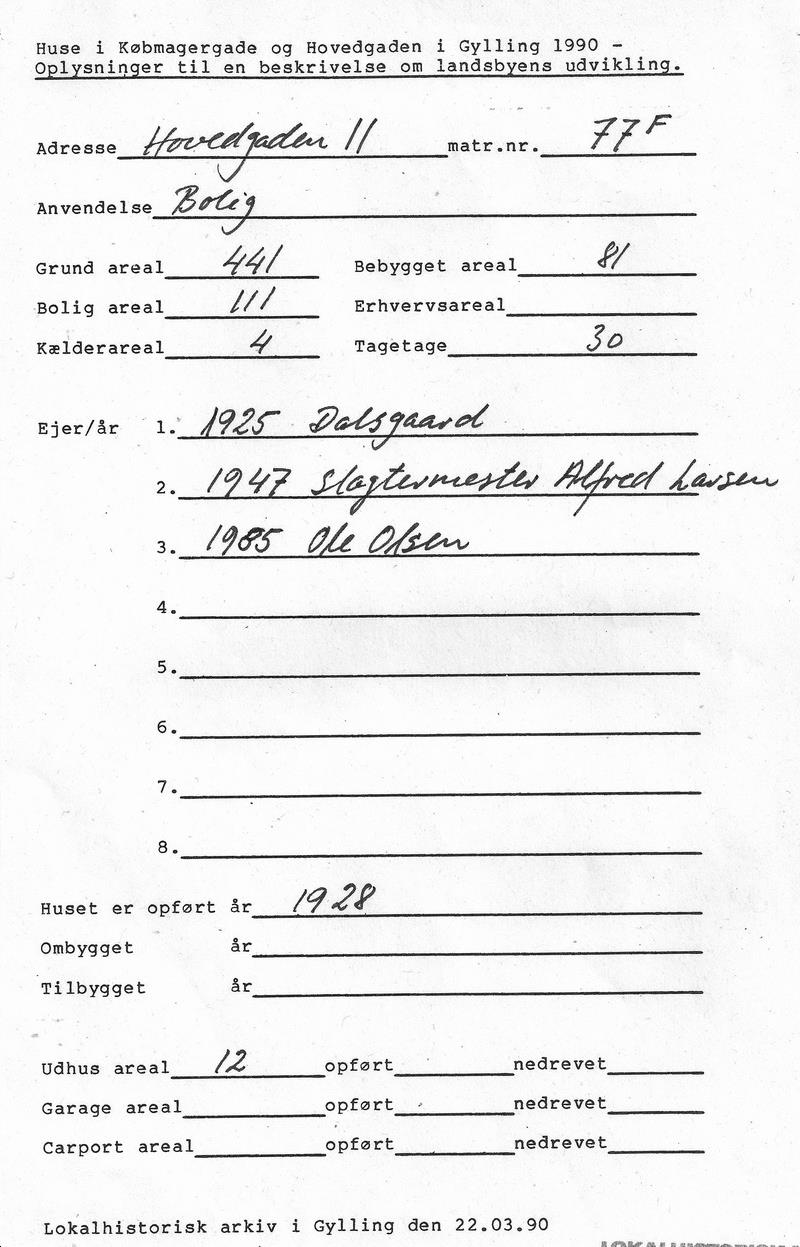 Huse i Købmagergade og Hovedgaden i Gylling 1990 -
Oplysninger til en beskrivelse om landsbyens udvikling.
Adresse Hovedgaden 11 matr.nr. 77F
Anvendelse Bolig
Grund areal 441 Bebygget areal 81
Bolig areal 111 Erhvervsareal
Kælderareal 4 Tagetage 30
Ejer/år 1. 1925 Dalsgaard
2. 1947 Slagtermester Alfred Larsen
3. 1985 Ole Olsen
4.
5.
6.
7.
8.
Huset er opført år 1928
Ombygget år
Tilbygget år
Udhus areal 12 opført nedrevet
Garage areal opført nedrevet
Carport areal opført nedrevet
Lokalhistorisk arkiv i Gylling den 22.03.90